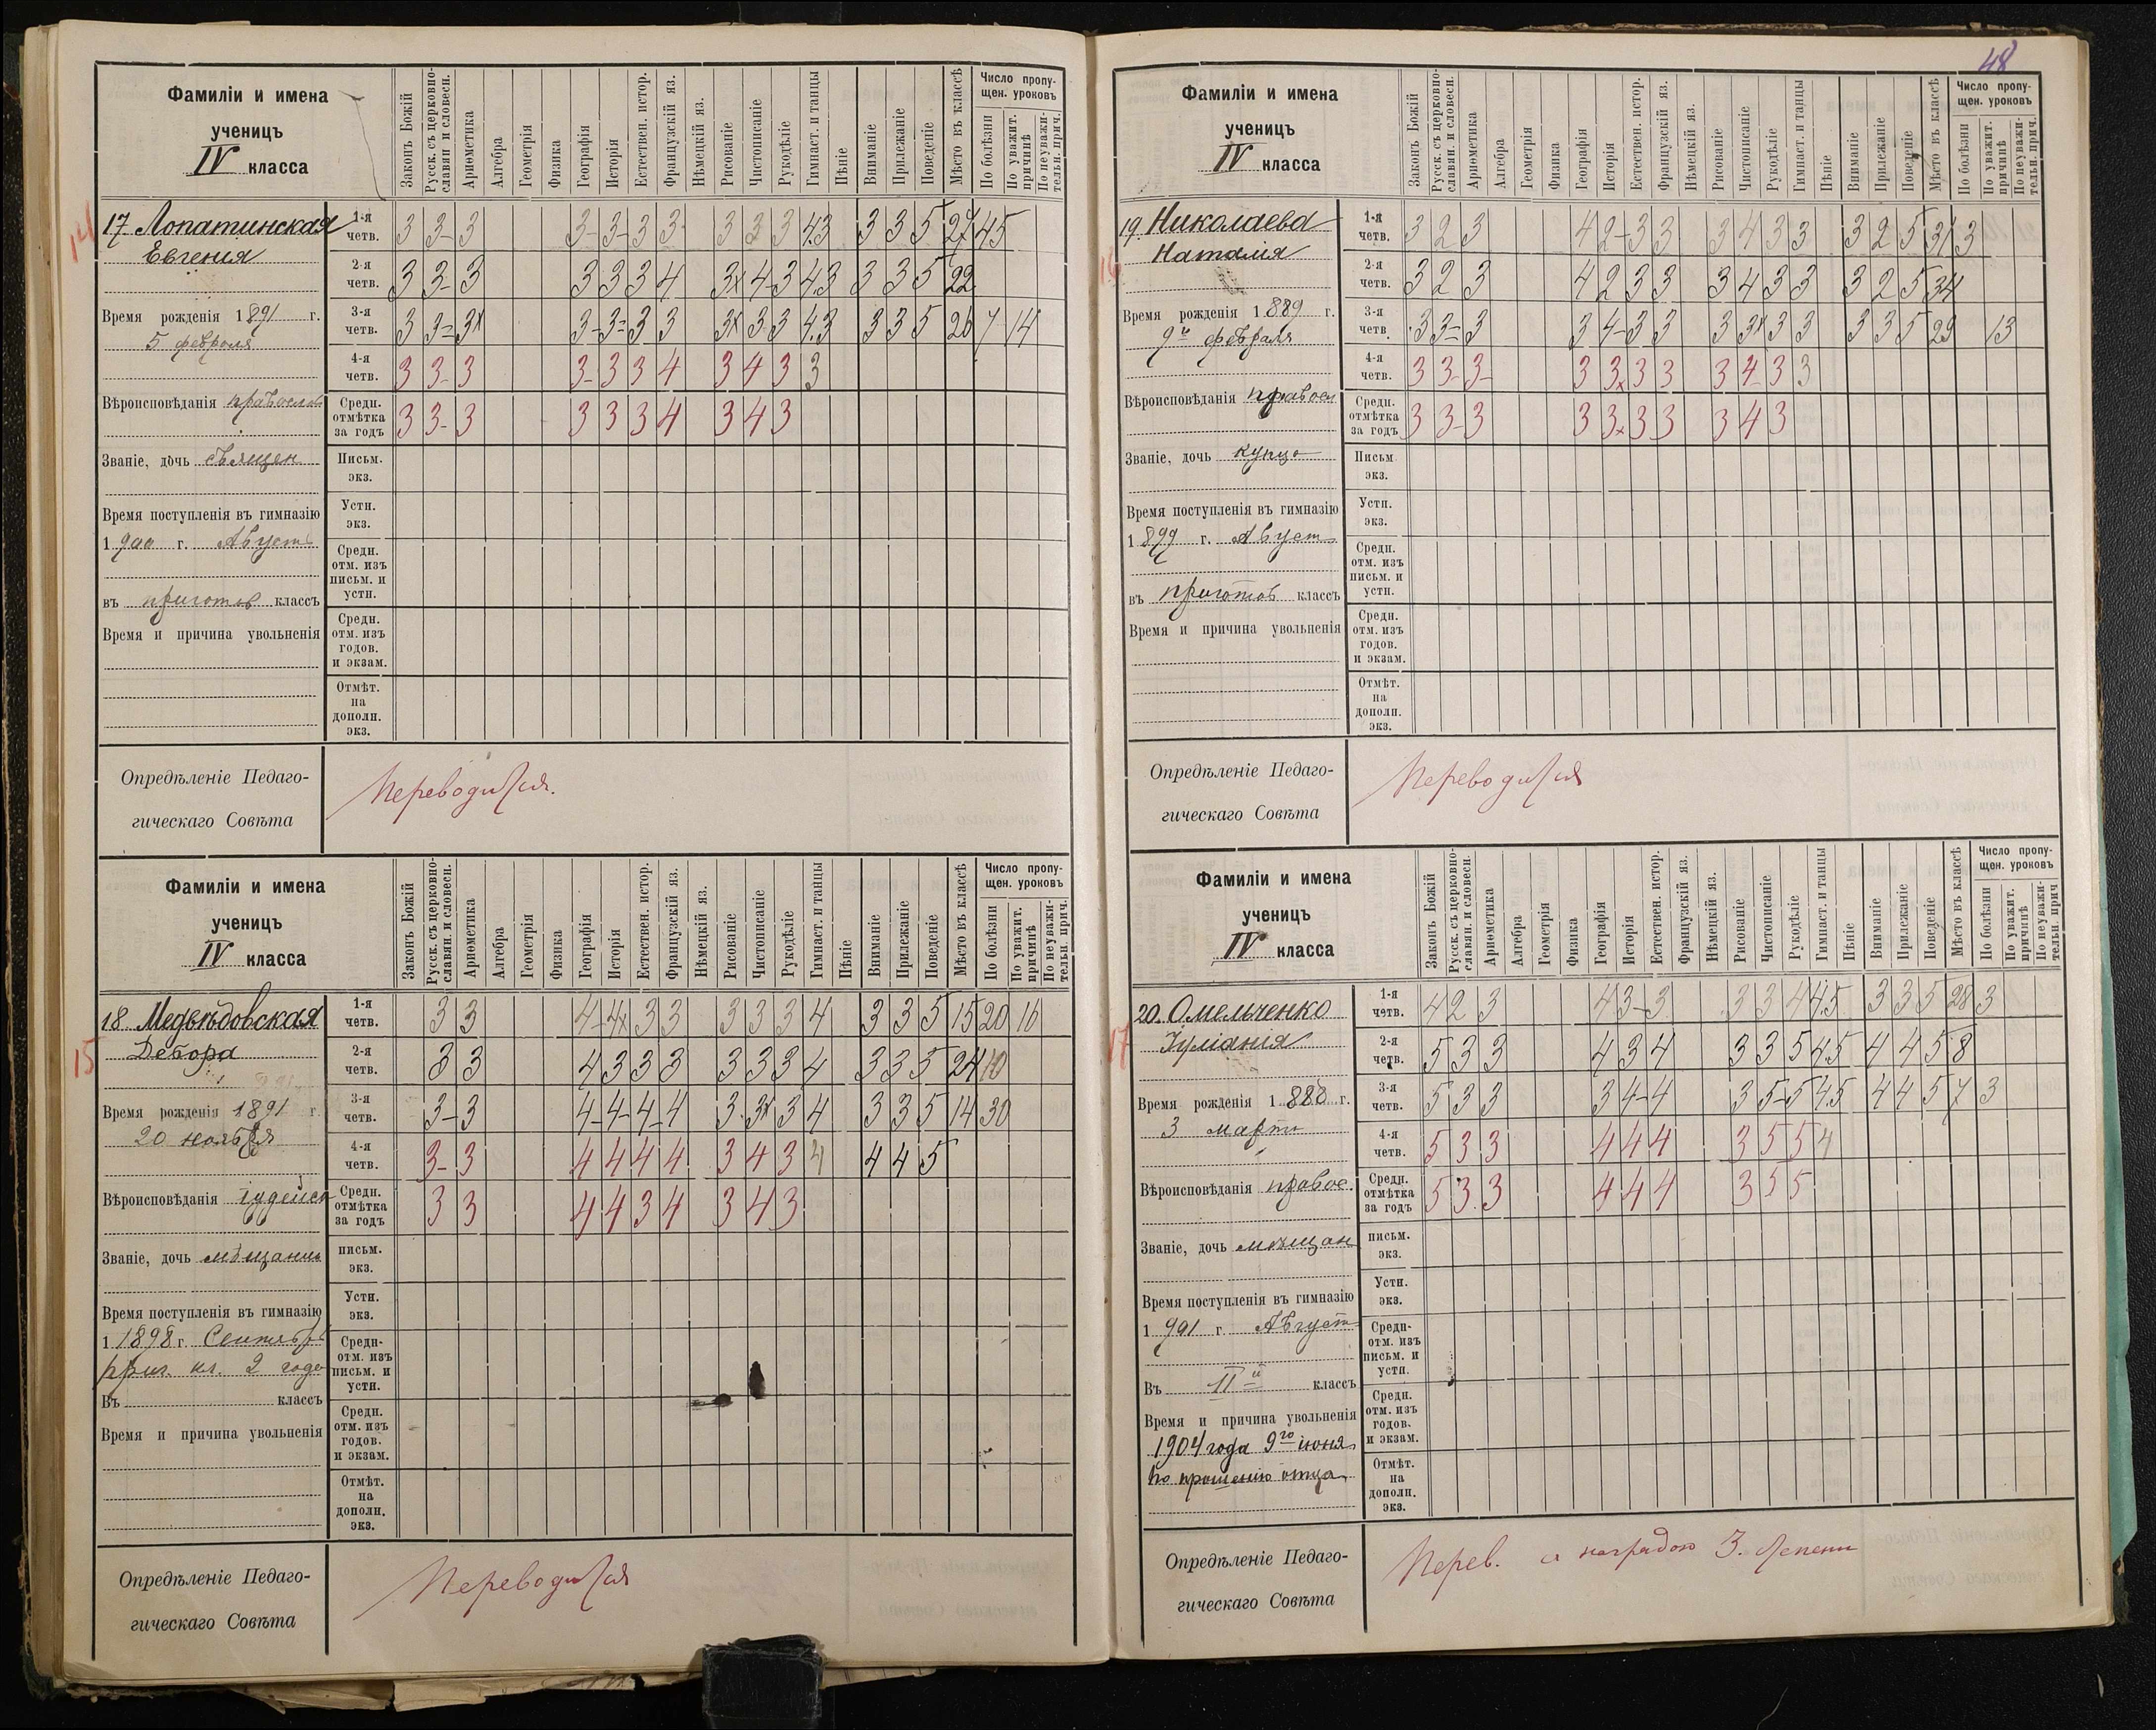 48
Фамиліи и имена
ученицъ
IV класса
Законъ Божій
Русск. съ церковно-
славян. и словесн.
Ариѳметика
Алгебра
Геометрія
Физика
Географія
Исторія
Естествен. истор.
Французскій яз.
Нѣмецкій яз.
Рисованіе
Чистописаніе
Рукодѣліе
Гимнаст. и танцы
Пѣніе
Вниманіе
Прилежаніе
Поведеніе
Мѣсто въ классѣ
Число пропу-
щен. уроковъ
По болѣзни
По уважит.
причинѣ
По неуважи-
тельн. прич.
14
17 Лопатинская
Евгенія
Время рожденія 1891 г.
5 февраля
Вѣроисповѣданія православ
Званіе, дочь священ
Время поступленія въ гимназію
1900 г. Августъ
въ приготов классъ
Время и причина увольненія
1-я четв. 3 3- 3 3- 3- 3 3 3 3 3 43 3 3 5 27 45
2-я четв. 3 3- 3 3 3 3 4 3x 4- 3 43 3 3 5 22
3-я четв. 3 3= 3x 3- 3= 3 3 3x 3 3 43 3 3 5 26 7 14
4-я четв. 3 3- 3 3- 3 3 4 3 4 3 3
Средн. отмѣтка за годъ 3 3- 3 3 3 3 4 3 4 3
Письм. экз.
Устн. экз.
Средн. отм. изъ письм. и устн.
Средн. отм. изъ годов. и экзам.
Отмѣт. на дополн. экз.
Опредѣленіе Педаго-
гическаго Совѣта
Переводится.
Фамиліи и имена
ученицъ
IV класса
Законъ Божій
Русск. съ церковно-
славян. и словесн.
Ариѳметика
Алгебра
Геометрія
Физика
Географія
Исторія
Естествен. истор.
Французскій яз.
Нѣмецкій яз.
Рисованіе
Чистописаніе
Рукодѣліе
Гимнаст. и танцы
Пѣніе
Вниманіе
Прилежаніе
Поведеніе
Мѣсто въ классѣ
Число пропу-
щен. уроковъ
По болѣзни
По уважит.
причинѣ
По неуважи-
тельн. прич.
15
18 Медвѣдовская
Дебора
Время рожденія 1891 г.
20 ноября
Вѣроисповѣданія іудейск
Званіе, дочь мѣщанин
Время поступленія въ гимназію
1 1898 г. Сентябрь
приг. кл. 2 года
Въ классъ
Время и причина увольненія
1-я четв. 3 3 4- 4x 3 3 3 3 3 4 3 3 5 15 20 16
2-я четв. 3 3 4 3 3 3 3 3 3 4 3 3 5 24 10
3-я четв. 3- 3 4- 4- 4- 4 3 3x 3 4 3 3 5 14 30
4-я четв. 3- 3 4 4 4 4 3 4 3 4 4 4 5
Средн. отмѣтка за годъ 3 3 4 4 3 4 3 4 3
письм. экз.
Устн. экз.
Средн- отм. изъ письм. и устн.
Средн. отм. изъ годов. и экзам.
Отмѣт. на дополн. экз.
Опредѣленіе Педаго-
гическаго Совѣта
Переводится
Фамиліи и имена
ученицъ
IV класса
Законъ Божій
Русск. съ церковно-
славян. и словесн.
Ариѳметика
Алгебра
Геометрія
Физика
Географія
Исторія
Естествен. истор.
Французскій яз.
Нѣмецкій яз.
Рисованіе
Чистописаніе
Рукодѣліе
Гимнаст. и танцы
Пѣніе
Вниманіе
Прилежаніе
Поведеніе
Мѣсто въ классѣ
Число пропу-
щен. уроковъ
По болѣзни
По уважит.
причинѣ
По неуважи-
тельн. прич.
16
19. Николаева
Наталія
Время рожденія 1889 г.
9го февраля
Вѣроисповѣданія правосл
Званіе, дочь купца
Время поступленія въ гимназію
1899 г. Август
въ приготов классъ
Время и причина увольненія
1-я четв. 3 2 3 4 2- 3 3 3 4 3 3 3 2 5 31 3
2-я четв. 3 2 3 4 2 3 3 3 4 3 3 3 2 5 34
3-я четв 3 3- 3 3 4- 3 3 3 3x 3 3 3 3 5 29 13
4-я четв. 3 3- 3- 3 3x 3 3 3 4- 3 3
Средн. отмѣтка за годъ 3 3- 3 3 3x 3 3 3 4 3
Письм экз.
Устн. экз.
Средн. отм. изъ письм. и устн.
Средн. отм. изъ годов. и экзам.
Отмѣт. на дополн. экз.
Опредѣленіе Педаго-
гическаго Совѣта
Переводится
Фамиліи и имена
ученицъ
IV класса
Законъ Божій
Русск. съ церковно-
славян. и словесн.
Ариѳметика
Алгебра
Геометрія
Физика
Географія
Исторія
Естествен. истор.
Французскій яз.
Нѣмецкій яз.
Рисованіе
Чистописаніе
Рукодѣліе
Гимнаст. и танцы
Пѣніе
Вниманіе
Прилежаніе
Поведеніе
Мѣсто въ классѣ
Число пропу-
щен. уроковъ
По болѣзни
По уважит.
причинѣ
По неуважи-
тельн. прич
17
20. Омельченко
Іуліанія
Время рожденія 1888 г.
3 марта
Вѣроисповѣданія правос.
Званіе, дочь мѣщан
Время поступленія въ гимназію
1901 г. Август
Въ IIй классъ
Время и причина увольненія
1904 года 9го іюня
по прошенію отца
1-я четв. 4 2 3 4 3- 3 3 3 4 45 3 3 5 28 3
2-я четв. 5 3 3 4 3 4 3 3 5 45 4 4 5 8
3-я четв. 5 3 3 3 4- 4 3 5- 5 45 4 4 5 7 3
4-я четв. 5 3 3 4 4 4 3 5 5 4
Средн. отмѣтка за годъ 5 3 3 4 4 4 3 5 5
письм. экз.
Устн. экз.
Средн- отм. изъ письм. и устн.
Средн. отм. изъ годов. и экзам.
Отмѣт. на дополн. экз.
Опредѣленіе Педаго-
гическаго Совѣта
Перев. с наградою 3. степени